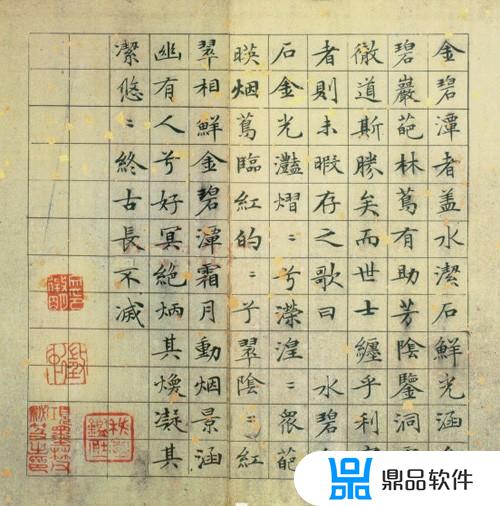 金碧潭者盖水潔石鮮光涵
碧巖葩林蔦有助芳陰鑒洞
徹道斯勝矣而世士纏乎利
者則未暇存之歌曰 水碧
石金光灎熠〻兮濚湟〻眾葩
暎烟蔦臨紅的〻兮翠陰〻紅
翠相鮮金碧潭霜月動烟景涵
幽有人兮好冥絕炳其煥凝其
潔悠〻終古長不滅
鼎品软件